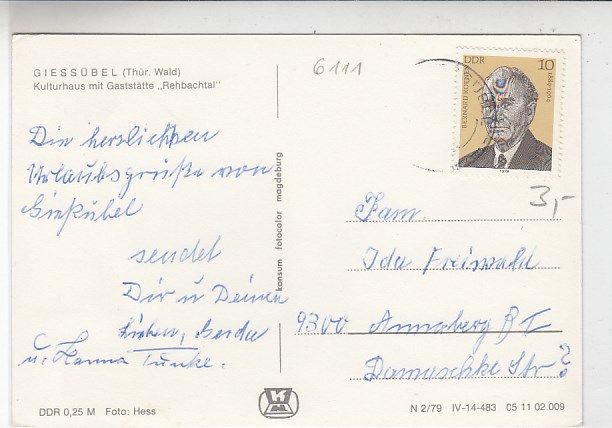 GIESSÜBEL (Thür. Wald)
Kulturhaus mit Gaststätte „Rehbachtal"
6111
DDR 10
BERNARD KOENEN
1889-1964
1979
3,-
Die herzlichsten
Urlaubsgrüße von
Gießübel
sendet
Dir u Deinen
Lieben, Gerda
u. Hanna Funke.
konsum fotocolor magdeburg
Fam.
Ida Freiwald
9300 Annaberg BI
Damaschke Str ?
DDR 0,25 M Foto: Hess
N 2/79 IV-14-483 05 11 02 009